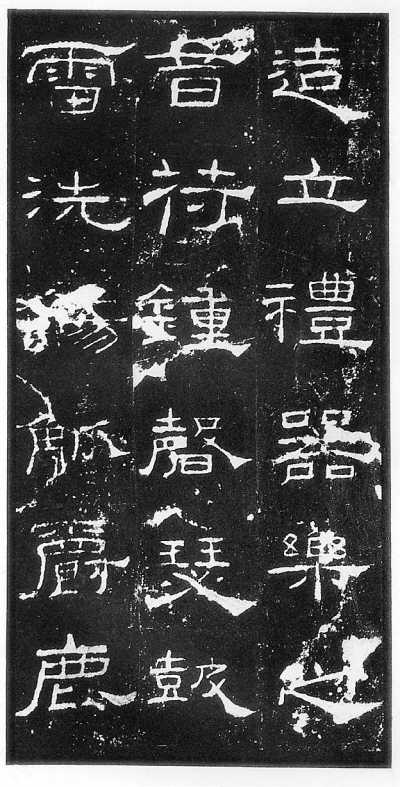 造立禮器樂之
音符鍾磬瑟鼓
雷洗觴觚爵鹿